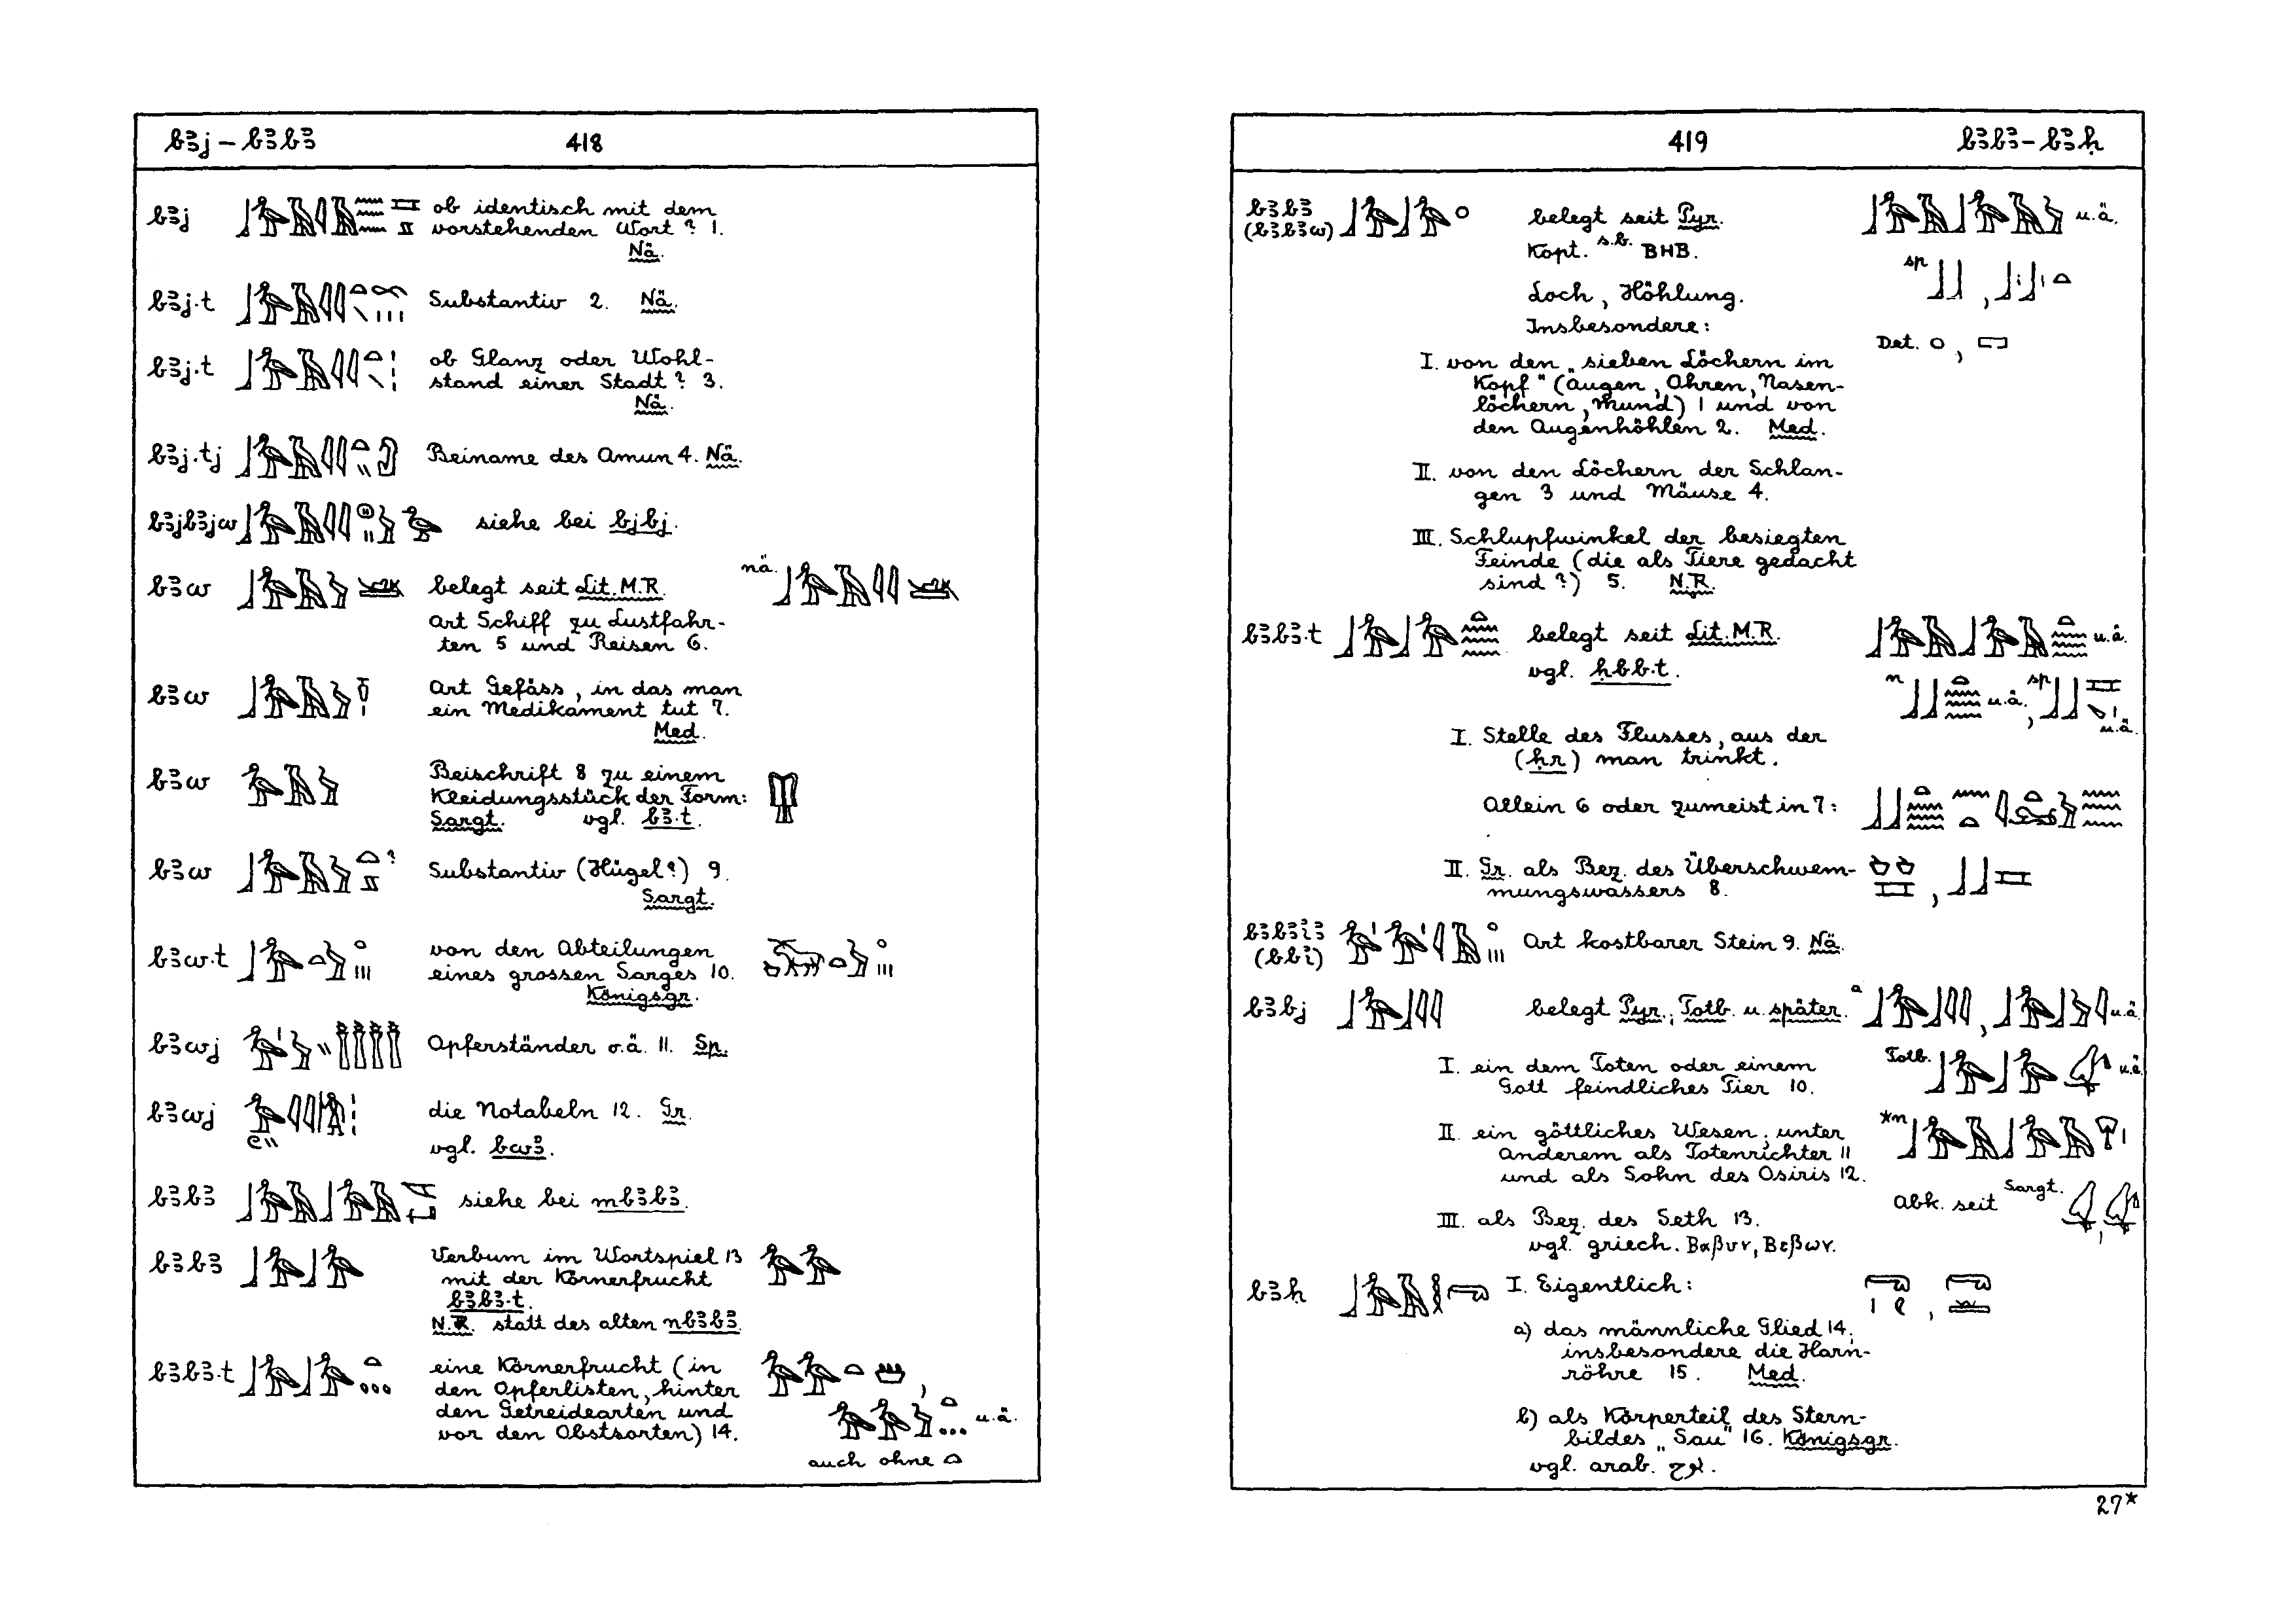 bꜣj – bꜣbꜣ 418
bꜣj ob identisch mit dem
vorstehenden Wort? 1.
Nä.
bꜣj.t Substantiv 2. Nä.
bꜣj.t ob Glanz oder Wohl-
stand einer Stadt? 3.
Nä.
bꜣj.tj Beiname des Amun 4. Nä.
bꜣjbꜣjw siehe bei bjbj.
bꜣw belegt seit Lit. M.R. nä.
Art Schiff zu Lustfahr-
ten 5 und Reisen 6.
bꜣw Art Gefäss, in das man
ein Medikament tut 7.
Med.
bꜣw Beischrift 8 zu einem
Kleidungsstück der Form:
Sargt. vgl. bꜣ.t.
bꜣw Substantiv (Hügel?) 9.
Sargt.
bꜣw.t von den Abteilungen
eines grossen Sarges 10.
Königsgr.
bꜣwj Opferständer o.ä. 11. Sp.
bꜣwj die Notabeln 12. Gr.
vgl. bwꜣ.
bꜣbꜣ siehe bei mbꜣbꜣ.
bꜣbꜣ Verbum im Wortspiel 13
mit der Körnerfrucht
bꜣbꜣ.t.
N.R. statt des alten nbꜣbꜣ.
bꜣbꜣ.t eine Körnerfrucht (in
den Opferlisten, hinter
den Getreidearten und
vor den Obstsorten) 14.
u.ä.
auch ohne
419 bꜣbꜣ – bꜣḥ
bꜣbꜣ belegt seit Pyr. u.ä.
(bꜣbꜣw)
Kopt. s.b. ΒΗΒ. sp
Loch, Höhlung.
Insbesondere:
Det.
I. von den „sieben Löchern im
Kopf" (Augen, Ohren, Nasen-
löchern, Mund) 1 und von
den Augenhöhlen 2. Med.
II. von den Löchern der Schlan-
gen 3 und Mäuse 4.
III. Schlupfwinkel der besiegten
Feinde (die als Tiere gedacht
sind?) 5. N.R.
bꜣbꜣ.t belegt seit Lit. M.R. u.ä.
vgl. ḥbb.t.
n u.ä., sp u.ä.
I. Stelle des Flusses, aus der
(ḥr) man trinkt.
Allein 6 oder zumeist in 7:
II. Gr. als Bez. des Überschwem-
mungswassers 8.
bꜣbꜣiꜣ Art kostbarer Stein 9. Nä.
(bbi)
bꜣbj belegt Pyr., Totb. u. später. a u.ä.
I. ein dem Toten oder einem Totb. u.ä.
Gott feindliches Tier 10.
II. ein göttliches Wesen, unter *n
anderem als Totenrichter 11
und als Sohn des Osiris 12.
Abk. seit Sargt.
III. als Bez. des Seth 13.
vgl. griech. Βαβυν, Βεβων.
bꜣḥ I. Eigentlich:
a) das männliche Glied 14,
insbesondere die Harn-
röhre 15. Med.
b) als Körperteil des Stern-
bildes „Sau" 16. Königsgr.
vgl. arab.
27*